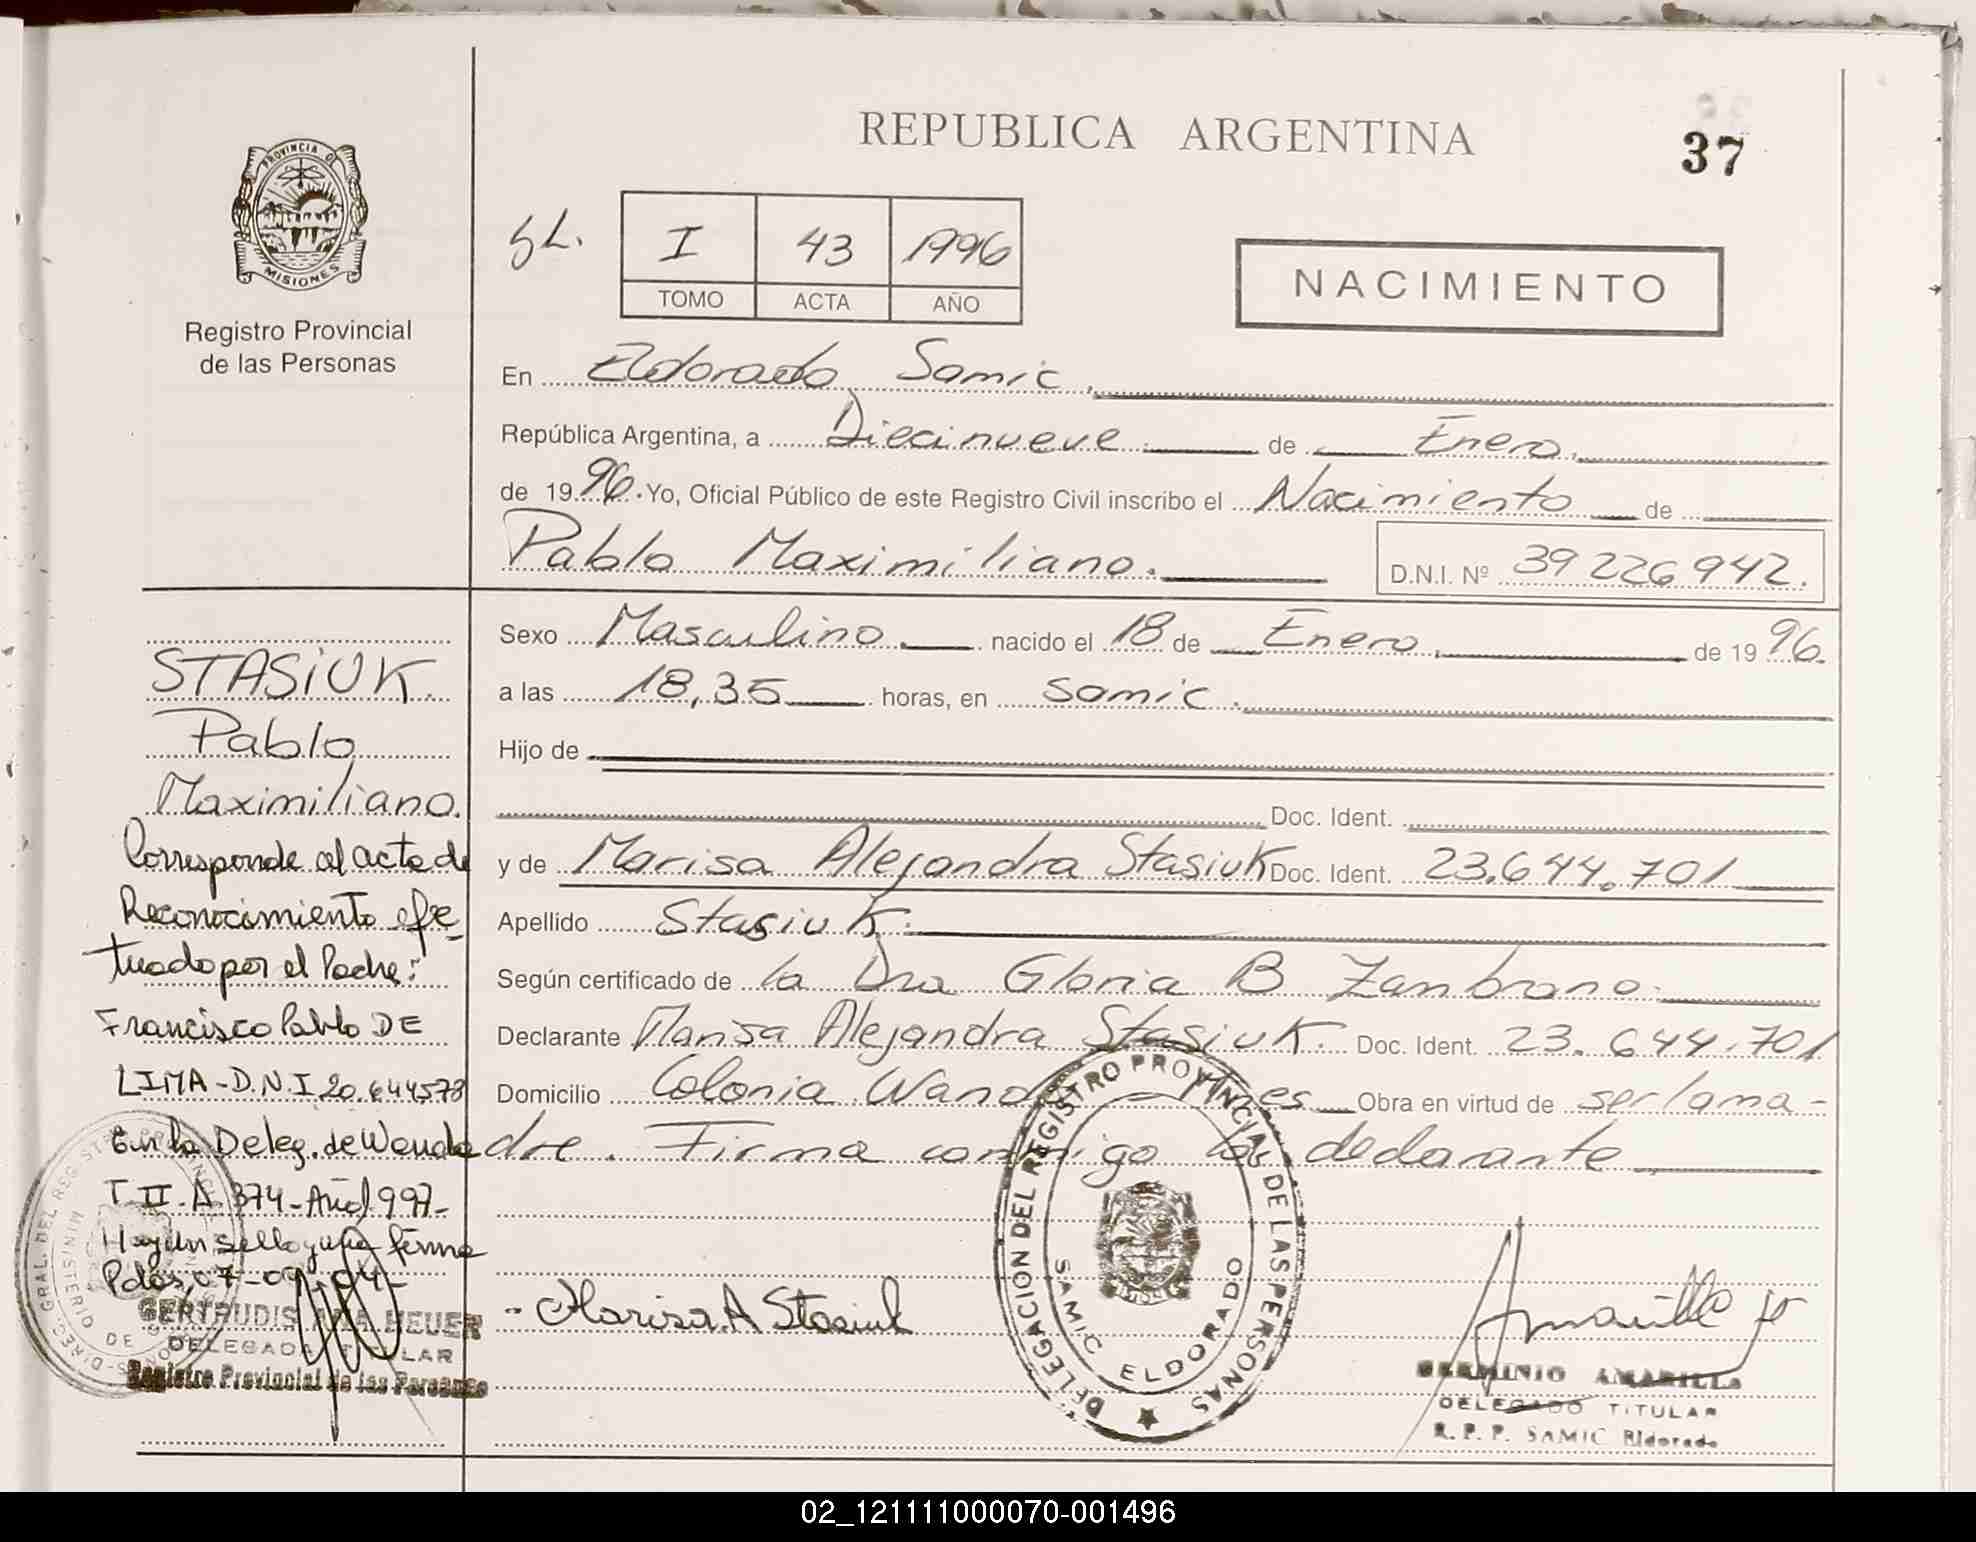 REPUBLICA ARGENTINA
37
PROVINCIA DE
MISIONES
Registro Provincial
de las Personas
I 43 1996
TOMO ACTA AÑO
NACIMIENTO
En Eldorado Samic.
República Argentina, a Diecinueve de Enero.
de 1996. Yo, Oficial Público de este Registro Civil inscribo el Nacimiento de
Pablo Maximiliano. D.N.I. Nº 39226942.
Sexo Masculino nacido el 18 de Enero de 1996.
a las 18,35 horas, en Samic.
Hijo de
Doc. Ident.
y de Marisa Alejandra Stasiuk Doc. Ident. 23.644.701
Apellido Stasiuk.
Según certificado de la Dra Gloria B Zambrano.
Declarante Marisa Alejandra Stasiuk. Doc. Ident. 23.644.701
Domicilio Colonia Wanda - Mnes Obra en virtud de ser la ma-
dre. Firma conmigo la declarante
STASIUK
Pablo
Maximiliano.
Corresponde al acta de
Reconocimiento efec-
tuado por el Padre:
Francisco Pablo DE
LIMA - D.N.I 20.644573
En la Deleg. de Wanda
T II - A 374 - Año 1997-
Hay un sello y una firma
Pdas, 07-09-04-
GERTRUDIS ANA HEUER
DELEGADA TITULAR
Registro Provincial de las Personas
Marisa A Stasiuk
DELEGACION DEL REGISTRO PROVINCIAL DE LAS PERSONAS
SAMIC ELDORADO
GERMINIO AMARILLA
DELEGADO TITULAR
R. P. P. SAMIC Eldorado
02_121111000070-001496